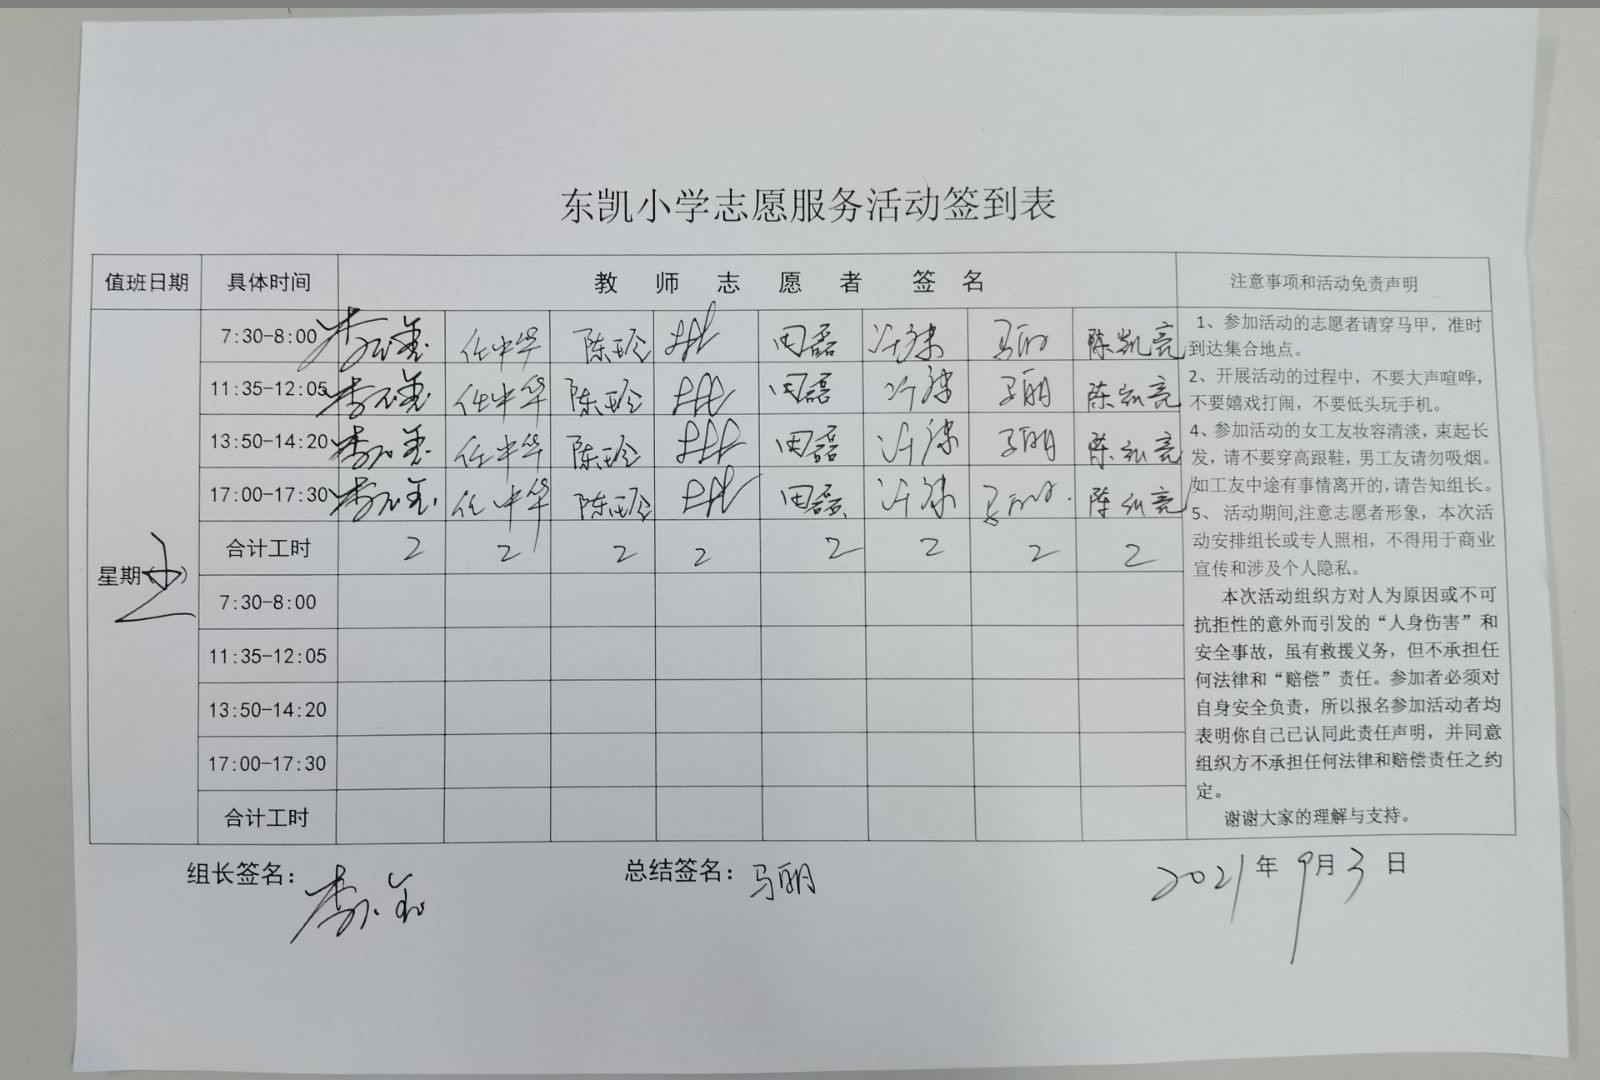 东凯小学志愿服务活动签到表
值班日期 具体时间 教师志愿者签名 注意事项和活动免责声明
7:30-8:00 任中华 陈玲 田磊 马丽 陈凯亮
11:35-12:05 任中华 陈玲 田磊 马丽 陈凯亮
13:50-14:20 任中华 陈玲 田磊 马丽 陈凯亮
17:00-17:30 任中华 陈玲 田磊 马丽 陈凯亮
合计工时 2 2 2 2 2 2 2 2
星期(五)
7:30-8:00
11:35-12:05
13:50-14:20
17:00-17:30
合计工时
1、参加活动的志愿者请穿马甲，准时
到达集合地点。
2、开展活动的过程中，不要大声喧哗，
不要嬉戏打闹，不要低头玩手机。
4、参加活动的女工友妆容清淡，束起长
发，请不要穿高跟鞋，男工友请勿吸烟。
如工友中途有事情离开的，请告知组长。
5、活动期间,注意志愿者形象，本次活
动安排组长或专人照相，不得用于商业
宣传和涉及个人隐私。
本次活动组织方对人为原因或不可
抗拒性的意外而引发的“人身伤害”和
安全事故，虽有救援义务，但不承担任
何法律和“赔偿”责任。参加者必须对
自身安全负责，所以报名参加活动者均
表明你自己已认同此责任声明，并同意
组织方不承担任何法律和赔偿责任之约
定。
谢谢大家的理解与支持。
组长签名： 总结签名：马丽 2021年9月3日